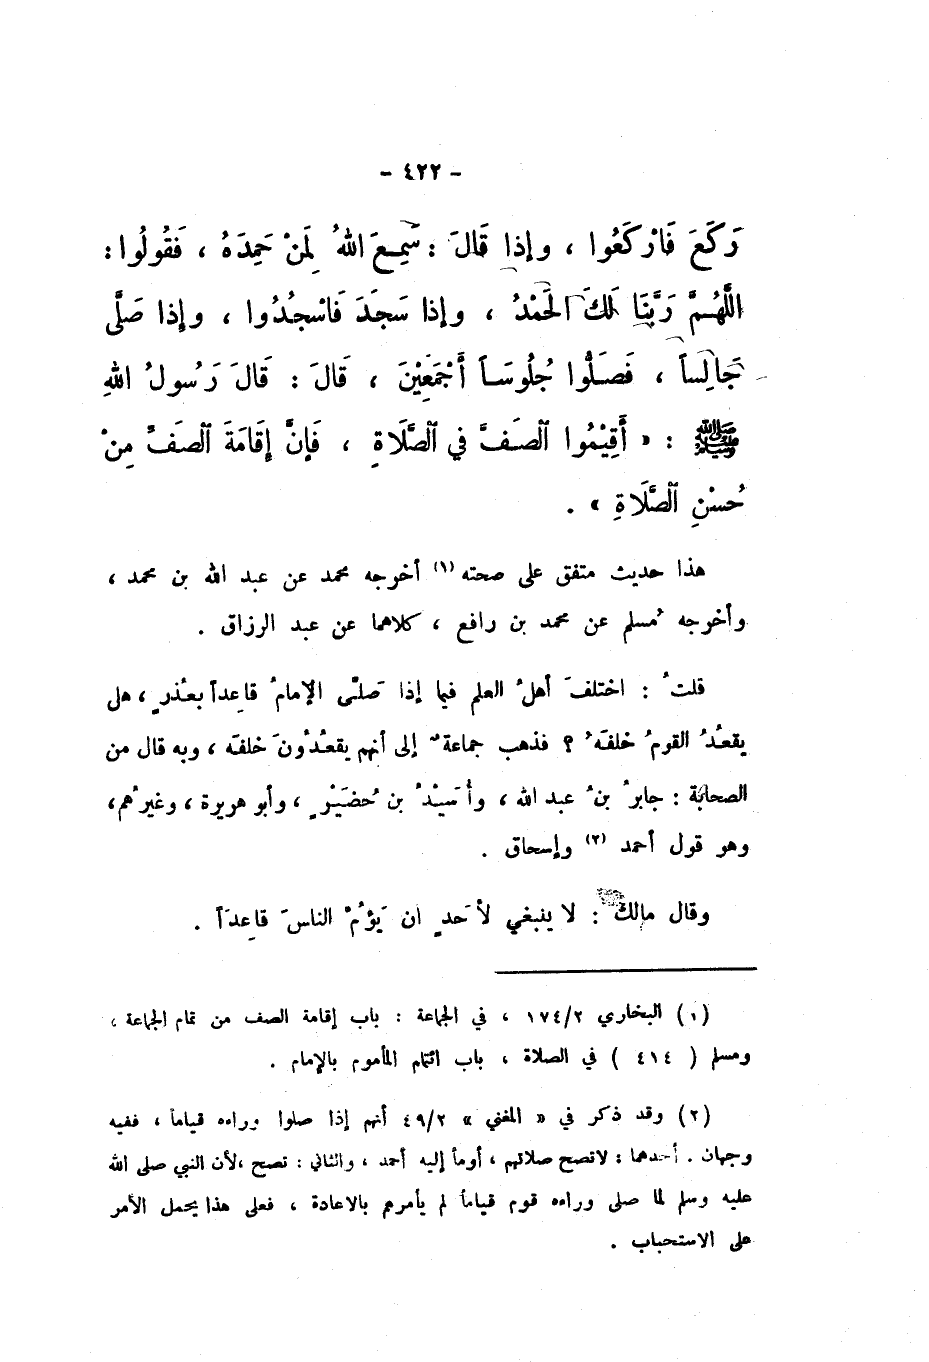 - ٤٢٢ -
رَكَعَ فَارْكَعُوا ، وإذا قَالَ : سَمِعَ اللهُ لِمَنْ حَمِدَهُ ، فَقُولُوا :
اللَّهُمَّ رَبَّنَا لَكَ الحَمْدُ ، وإذا سَجَدَ فَاسْجُدُوا ، وإذا صَلَّى
جَالِساً ، فَصَلُّوا جُلُوسَاً أَجْمَعِيْنَ ، قَالَ : قَالَ رَسُولُ اللهِ
ﷺ : « أَقِيْمُوا الصَفَّ في الصَّلَاةِ ، فَإِنَّ إِقَامَةَ الصَفِّ مِنْ
حُسْنِ الصَّلَاةِ » .
هذا حديث متفق على صحته (١) أخرجه محمد عن عبد الله بن محمد ،
وأخرجه مُسلم عن محمد بن رافع ، كلاهما عن عبد الرزاق .
قلتُ : اختلفَ أهلُ العلم فيما إذا صَلَّى الإمامُ قاعِداً بعُذرٍ ، هل
يقعُدُ القومُ خلفَهُ ؟ فذهب جماعةٌ إلى أنهم يقعُدُونَ خلفَه ، وبه قال من
الصحابَة : جابرُ بنُ عبد الله ، وأُسَيْدُ بن حُضَيْرٍ ، وأبو هريرة ، وغيرُهم،
وهو قول أحمد (٢) وإسحاق .
وقال مالكٌ : لا ينبغي لأحَدٍ ان يَؤُمَّ الناسَ قاعِدَاً .
(١) البخاري ١٧٤/٢ ، في الجماعة : باب إقامة الصف من تمام الجماعة ،
ومسلم ( ٤١٤ ) في الصلاة ، باب ائتمام المأموم بالإمام .
(٢) وقد ذكر في « المغني » ٤٩/٢ أنهم إذا صلوا وراءه قياماً ، ففيه
وجهان . أحدهما : لاتصح صلاتهم ، أومأ إليه أحمد ، والثاني : تصح ،لأن النبي صلى الله
عليه وسلم لما صلى وراءه قوم قياماً لم يأمرهم بالاعادة ، فعلى هذا يحمل الأمر
على الاستحباب .